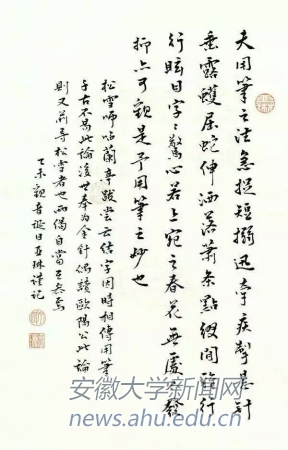 夫用筆之法急捉短搦迅牽疾掣悬针
垂露蠖屈蛇伸洒落萧条點缀閒雅行
行眩目字〻驚心若上苑之春花無處不發
抑亦可觀是予用筆之妙也
松雪師哈蘭亭跋云云結字因時相傳用筆
千古不易此論後世奉為金针偶讀歐陽公此論
則又前导松雪者也而偶自當至矣焉
乙未觀音誕日 謹記
安徽大学新闻网
news.ahu.edu.cn